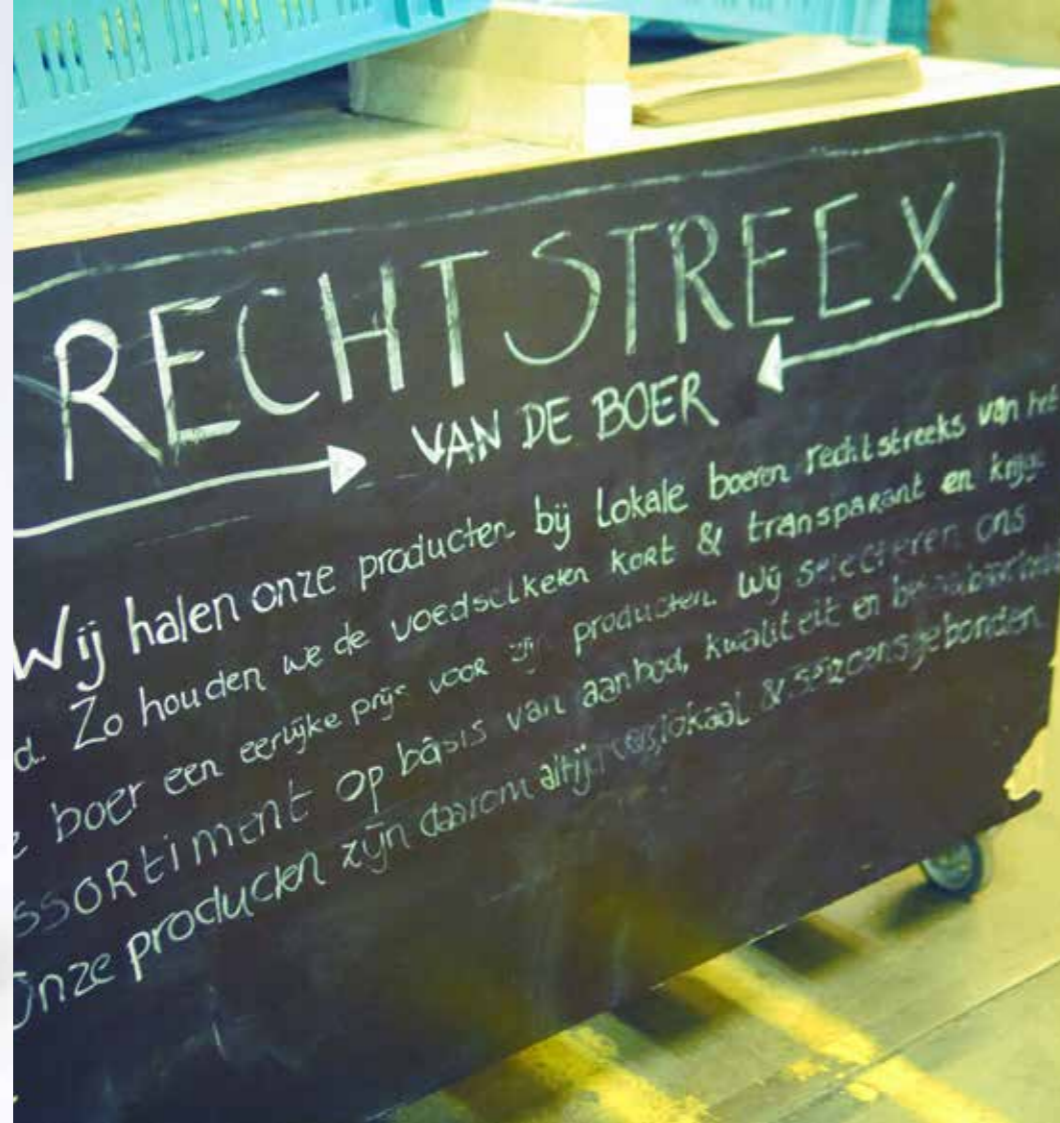 RECHTSTREEX
VAN DE BOER
Wij halen onze producten bij lokale boeren rechtstreeks van het
d. Zo houden we de voedselketen kort & transparant en krijg
e boer een eerlijke prijs voor zijn producten. Wij selecteren ons
ssortiment op basis van aanbod, kwaliteit en
Onze producten zijn daarom altijd vers, lokaal & seizoensgebonden